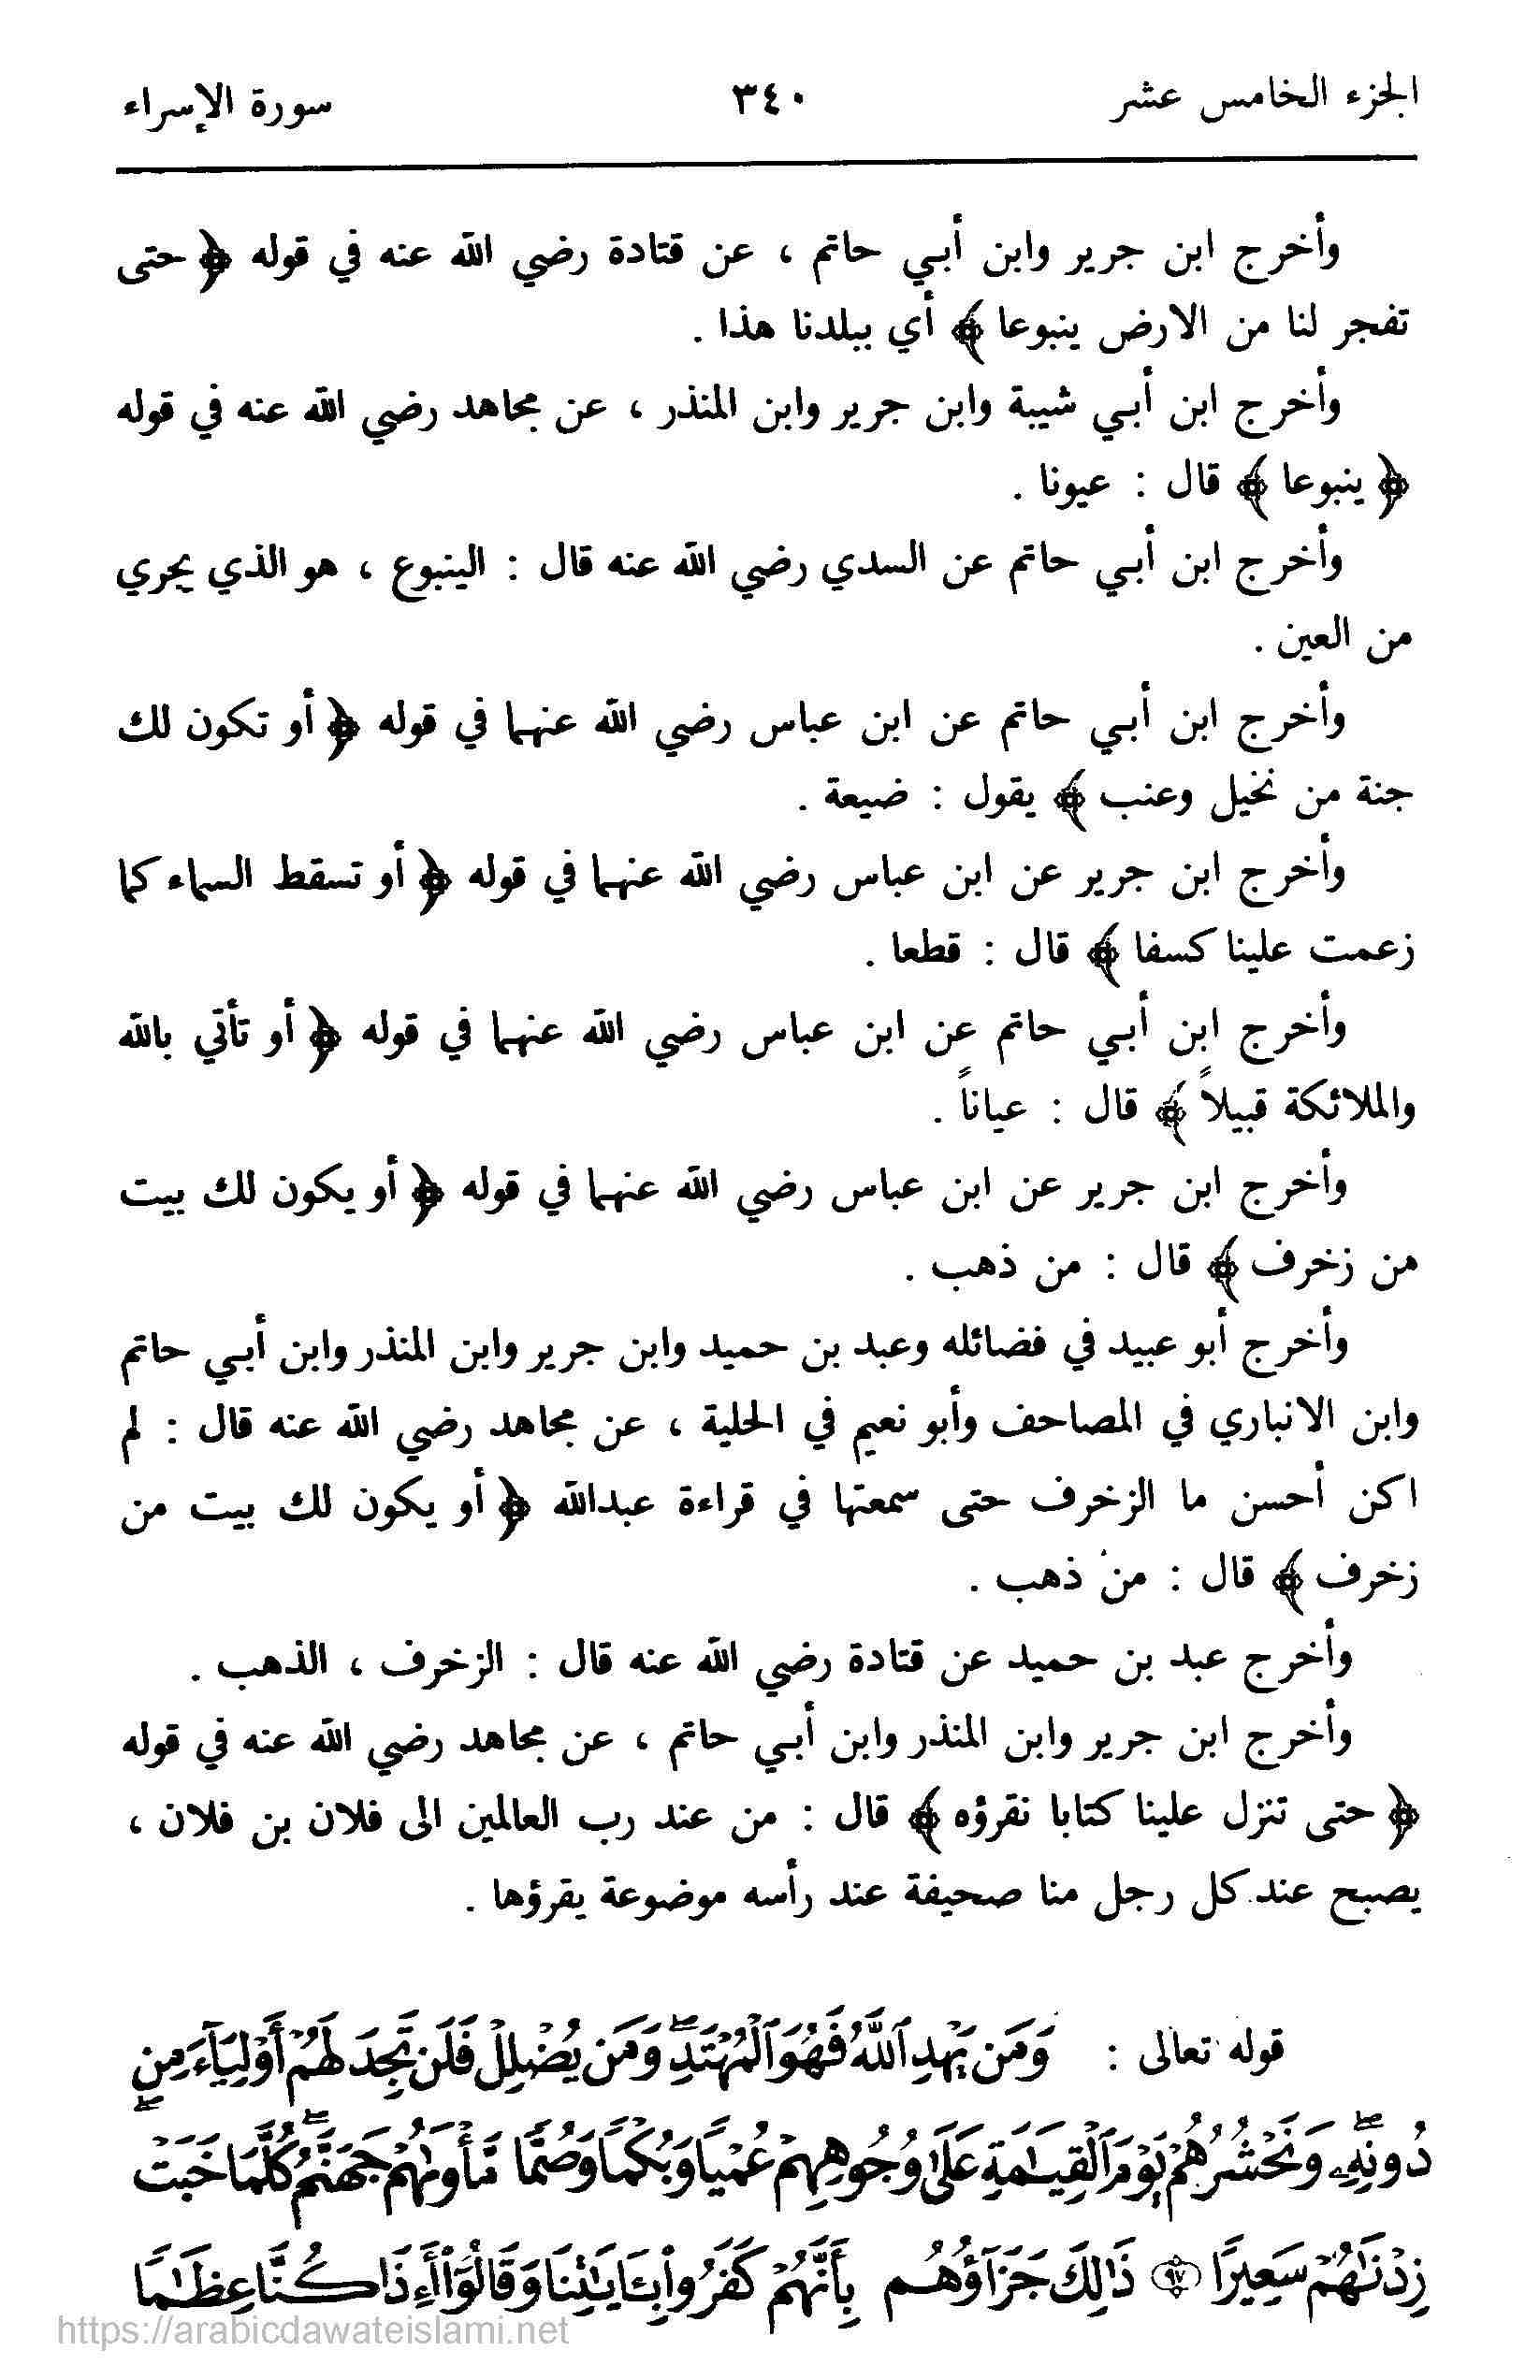 الجزء الخامس عشر ٣٤٠ سورة الإسراء
وأخرج ابن جرير وابن أبي حاتم ، عن قتادة رضي الله عنه في قوله ﴿ حتى
تفجر لنا من الارض ينبوعا ﴾ أي ببلدنا هذا .
وأخرج ابن أبي شيبة وابن جرير وابن المنذر ، عن مجاهد رضي الله عنه في قوله
﴿ ينبوعا ﴾ قال : عيونا .
وأخرج ابن أبي حاتم عن السدي رضي الله عنه قال : الينبوع ، هو الذي يجري
من العين .
وأخرج ابن أبي حاتم عن ابن عباس رضي الله عنهما في قوله ﴿ أو تكون لك
جنة من نخيل وعنب ﴾ يقول : ضيعة .
وأخرج ابن جرير عن ابن عباس رضي الله عنهما في قوله ﴿ أو تسقط السماء كما
زعمت علينا كسفا ﴾ قال : قطعا .
وأخرج ابن أبي حاتم عن ابن عباس رضي الله عنهما في قوله ﴿ أو تأتي بالله
والملائكة قبيلاً ﴾ قال : عياناً .
وأخرج ابن جرير عن ابن عباس رضي الله عنهما في قوله ﴿ أو يكون لك بيت
من زخرف ﴾ قال : من ذهب .
وأخرج أبو عبيد في فضائله وعبد بن حميد وابن جرير وابن المنذر وابن أبي حاتم
وابن الانباري في المصاحف وأبو نعيم في الحلية ، عن مجاهد رضي الله عنه قال : لم
اكن أحسن ما الزخرف حتى سمعتها في قراءة عبدالله ﴿ أو يكون لك بيت من
زخرف ﴾ قال : من ذهب .
وأخرج عبد بن حميد عن قتادة رضي الله عنه قال : الزخرف ، الذهب .
وأخرج ابن جرير وابن المنذر وابن أبي حاتم ، عن مجاهد رضي الله عنه في قوله
﴿ حتى تنزل علينا كتابا نقرؤه ﴾ قال : من عند رب العالمين الى فلان بن فلان ،
يصبح عند كل رجل منا صحيفة عند رأسه موضوعة يقرؤها .
قوله تعالى : وَمَن يَهْدِ ٱللَّهُ فَهُوَ ٱلْمُهْتَدِۖ وَمَن يُضْلِلْ فَلَن تَجِدَ لَهُمْ أَوْلِيَآءَ مِن
دُونِهِۦۖ وَنَحْشُرُهُمْ يَوْمَ ٱلْقِيَٰمَةِ عَلَىٰ وُجُوهِهِمْ عُمْيًا وَبُكْمًا وَصُمًّا مَّأْوَىٰهُمْ جَهَنَّمُۖ كُلَّمَا خَبَتْ
زِدْنَٰهُمْ سَعِيرًا ۝٩٧ ذَٰلِكَ جَزَآؤُهُم بِأَنَّهُمْ كَفَرُوا۟ بِـَٔايَٰتِنَا وَقَالُوٓا۟ أَءِذَا كُنَّا عِظَٰمًا
https://arabicdawateislami.net